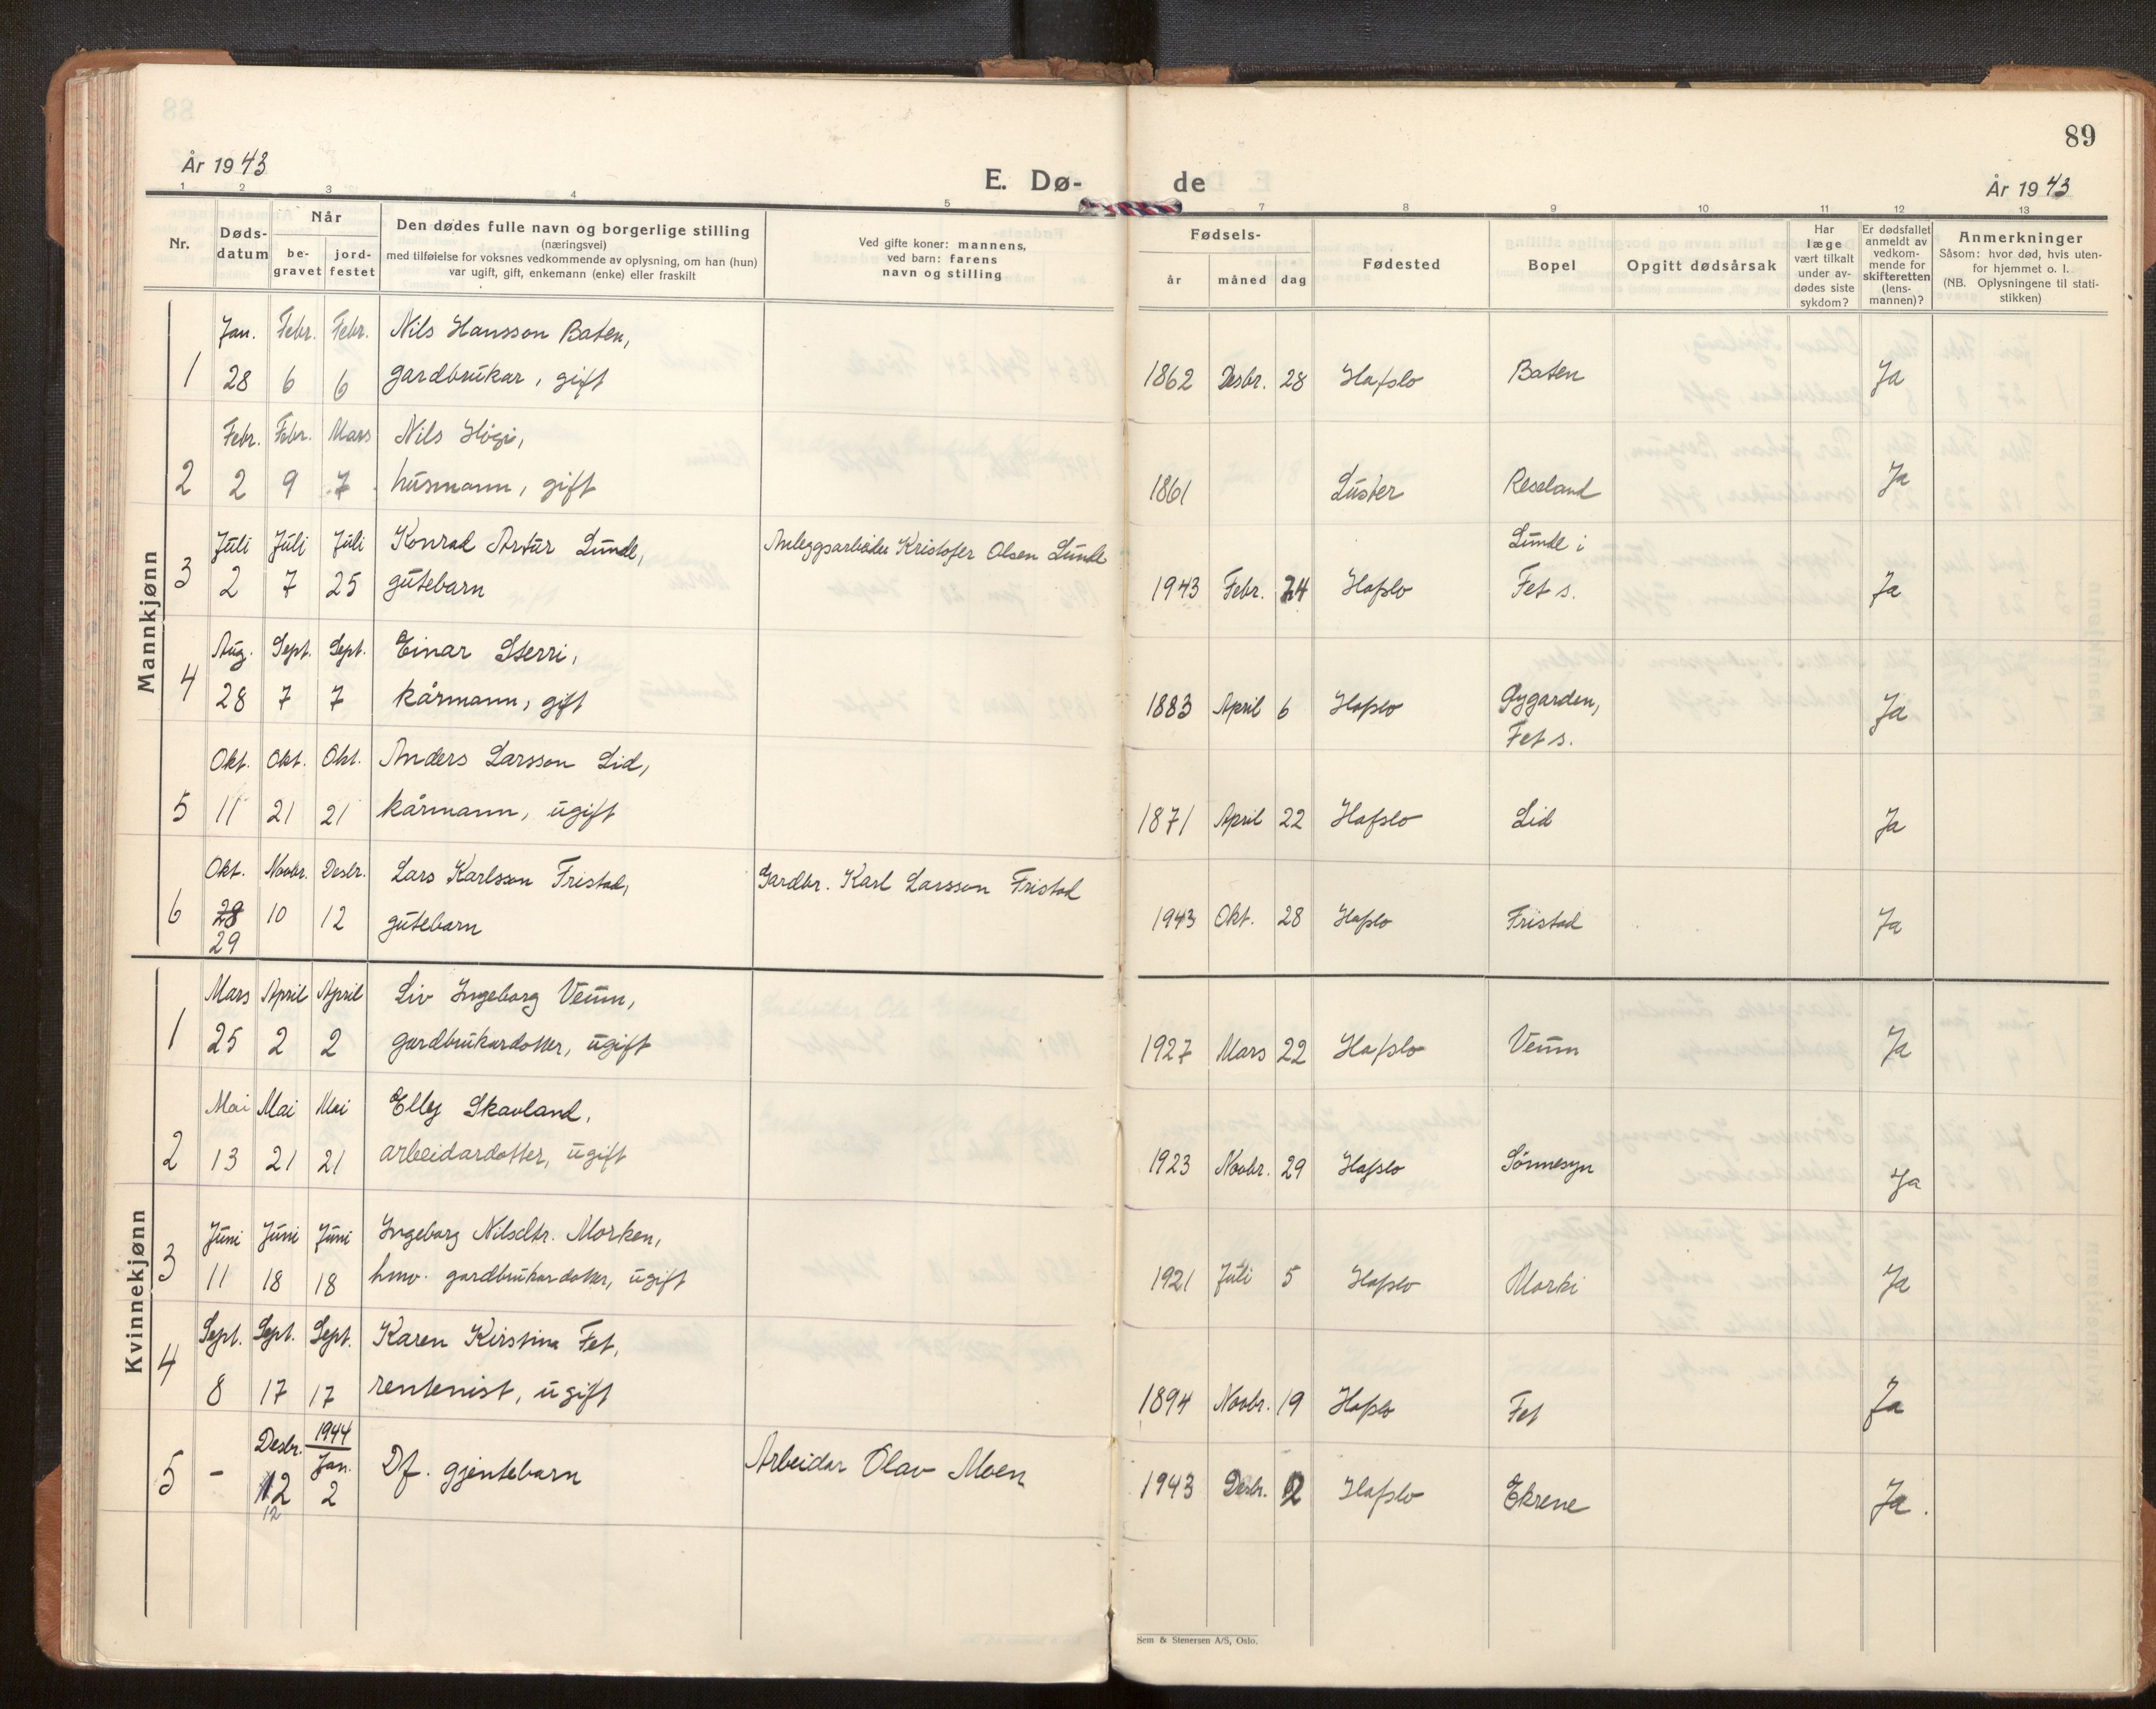 89
År 1943
E. Dø-
de
År 1943
1 2 3 4 5 7 8 9 10 11 12 13
Nr.
Døds-
datum
Når
be-
gravet
jord-
festet
Den dødes fulle navn og borgerlige stilling
(næringsvei)
med tilføielse for voksnes vedkommende av oplysning, om han (hun)
var ugift, gift, enkemann (enke) eller fraskilt
Ved gifte koner: mannens,
ved barn: farens
navn og stilling
Fødsels-
år måned dag
Fødested
Bopel
Opgitt dødsårsak
Har
læge
vært tilkalt
under av-
dødes siste
sykdom?
Er dødsfallet
anmeldt av
vedkom-
mende for
skifteretten
(lens-
mannen)?
Anmerkninger
Såsom: hvor død, hvis uten-
for hjemmet o. l.
(NB. Oplysningene til stati-
stikken)
Mannkjønn
Jan. Febr. Febr. Nils Hansson Baten,
1 28 6 6 gardbrukar, gift 1862 Desbr. 28 Hafslo Baten Ja
Febr. Febr. Mars Nils Høgi,
2 2 9 7 husmann, gift 1861 Luster Reseland Ja
Juli Juli Juli Konrad Artur Lunde, Anleggsarbeider Kristofer Olsen Lunde Lunde i
3 2 7 25 gutebarn 1943 Febr. 24 Hafslo Fet s. Ja
Aug. Sept. Sept. Einar Sterri,
4 28 7 7 kårmann, gift 1883 April 6 Hafslo Øygarden, Ja
Fet s.
Okt. Okt. Okt. Anders Larsson Lid,
5 11 21 21 kårmann, ugift 1871 April 22 Hafslo Lid Ja
Okt. Novbr. Desbr. Lars Karlsson Fristad, Gardbr. Karl Larsson Fristad
6 28 10 12 gutebarn 1943 Okt. 28 Hafslo Fristad Ja
29
Kvinnekjønn
Mars April April Liv Ingeborg Veum,
1 25 2 2 gardbrukardotter, ugift 1927 Mars 22 Hafslo Veum Ja
Mai Mai Mai Elly Skavland,
2 13 21 21 arbeidardotter, ugift 1923 Novbr. 29 Hafslo Sønnesyn Ja
Juni Juni Juni Ingeborg Nilsdtr. Morken,
3 11 18 18 hmv. gardbrukardotter, ugift 1921 Juli 5 Hafslo Morki Ja
Sept. Sept. Sept. Karen Kirstina Fet,
4 8 17 17 rentenist, ugift 1894 Novbr. 19 Hafslo Fet Ja
Desbr. 1944
Jan.
5 - 12 2 Df. gjentebarn Arbeidar Olav Moen 1943 Desbr. 2 Hafslo Ekrene Ja.
12
Sem & Stenersen A/S, Oslo.